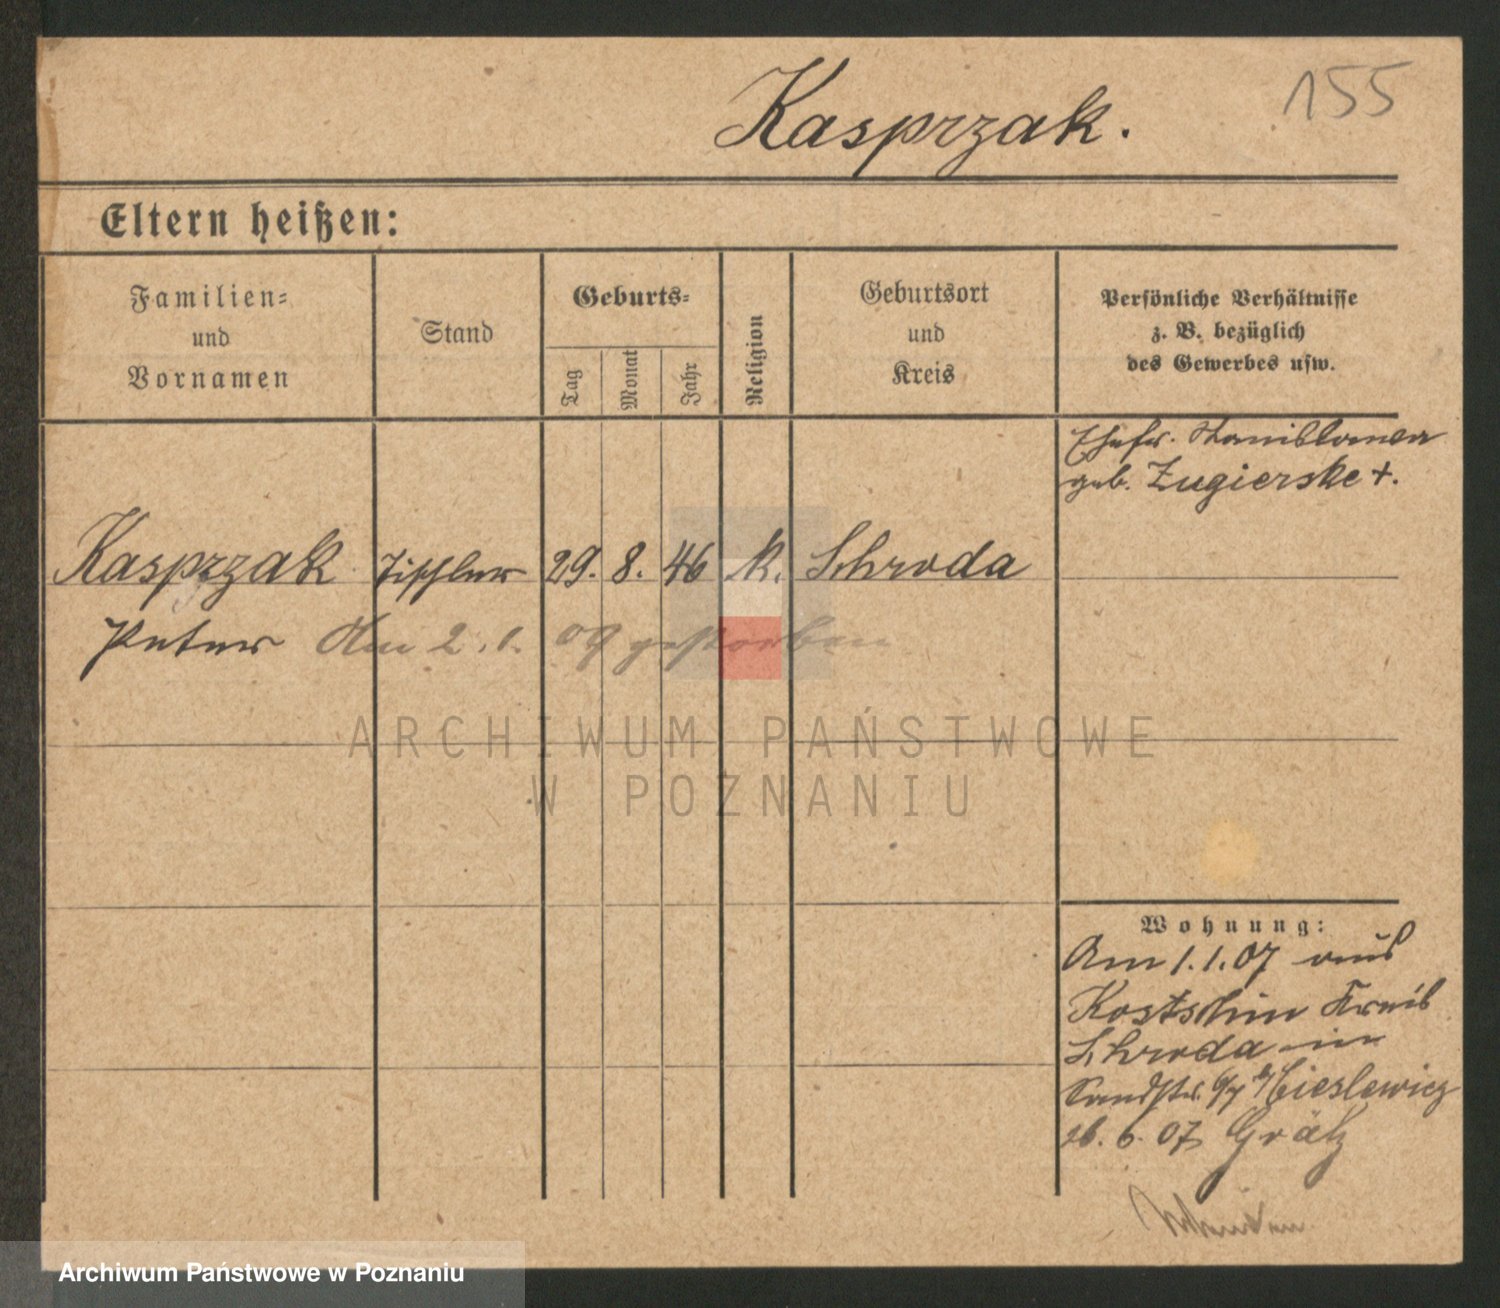 155
Kasprzak.
Eltern heißen:
Familien-
und
Vornamen
Stand
Geburts-
Tag
Monat
Jahr
Religion
Geburtsort
und
Kreis
Persönliche Verhältnisse
z. B. bezüglich
des Gewerbes usw.
Ehefr. Stanislawa
geb. Zugierske +.
Kasprzak Tischler 29. 8. 46 k. Schroda
Peter Am 2. 1. 09 gestorben
ARCHIWUM PAŃSTWOWE
W POZNANIU
Wohnung:
Am 1. 1. 07 aus
Kostschin Kreis
Schroda in
Sandstr. 6/7 b/Cieslewicz
26. 6. 07 Grätz
Archiwum Państwowe w Poznaniu